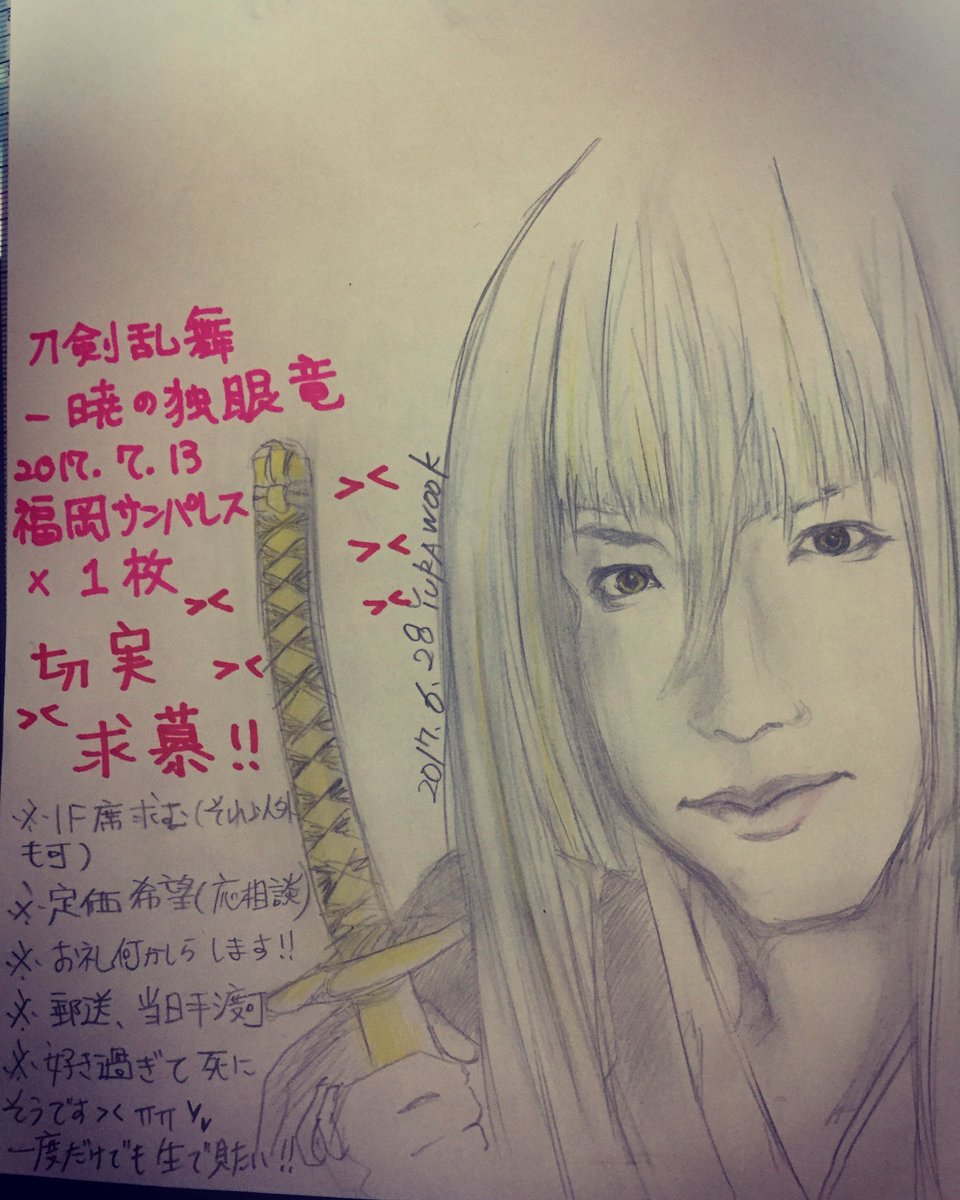 刀剣乱舞
－暁の独眼竜
2017.7.13
福岡サンパレス
x 1枚
><
><
><
><
><
><
切実
求慕!!
※1F席求む(それ以外
も可)
※定価希望(応相談)
※お礼何かしらします!!
※郵送、当日手渡可
※好き過ぎて死に
そうです>< ㅠㅠ
一度だけでも生で見たい!!
2017.6.28 YURAWOOK